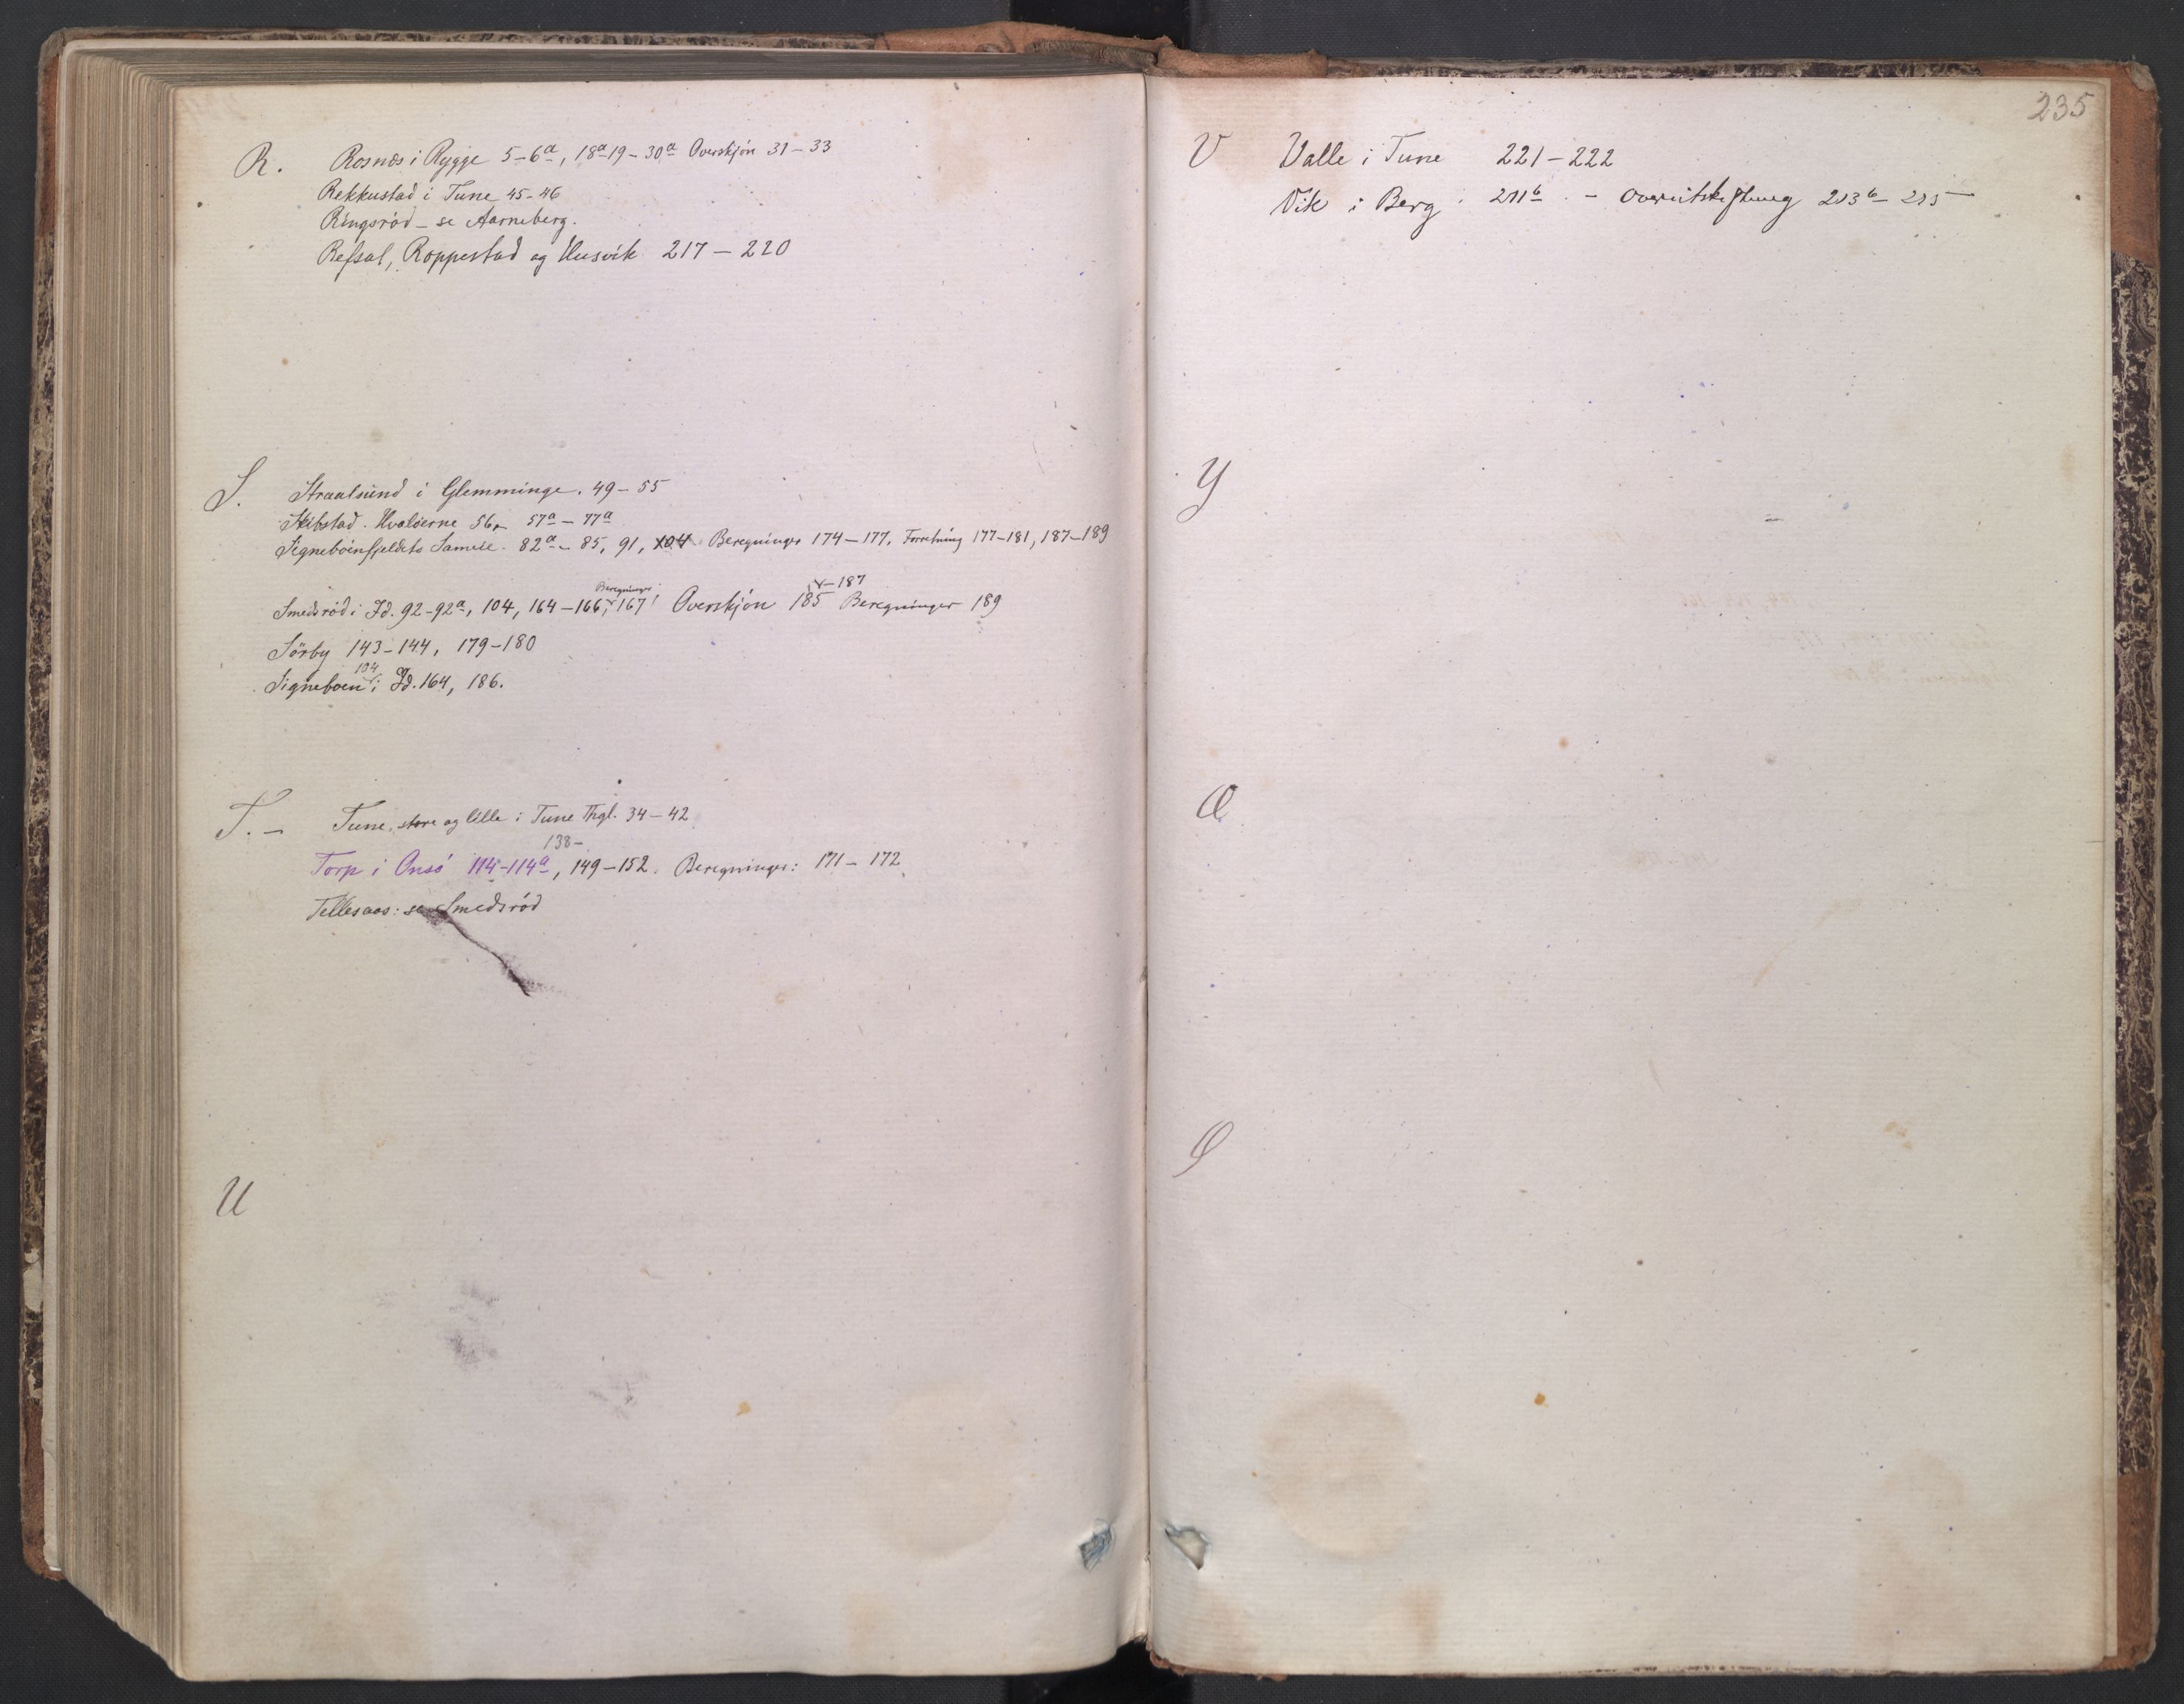 R. Rosnæs i Rygge 5-6a, 18a 19-30a Overskjön 31-33
Rekkustad i Tune 45-46
Ringsröd - se Aarneberg.
Refsal, Roppestad og Husvik 217-220
S. Straalsund i Glemminge. 49-55
Skibstad. Hvalöerne 56, 57a-77a
Signeböenfjeldets Sameie. 82a-85, 91, 104 Beregninger 174-177, Forretning 177-181, 187-189
Beregninger -187
Smedsröd i Id. 92-92a, 104, 164-166, 167 Overskjön 185 Beregninger 189
Sörby 143-144, 179-180
104
Signeboen i Id. 164, 186.
T. - Tune, store og lille i Tune Thgl. 34-42
138-
Torp i Onsö 114-114a, 149-152. Beregninger: 171-172
Tellesaas: se Smedsröd
U
235
V Valle i Tune 221-222
Vik i Berg 211b - Overutskiftning 213b-215
Y
Æ
Ø